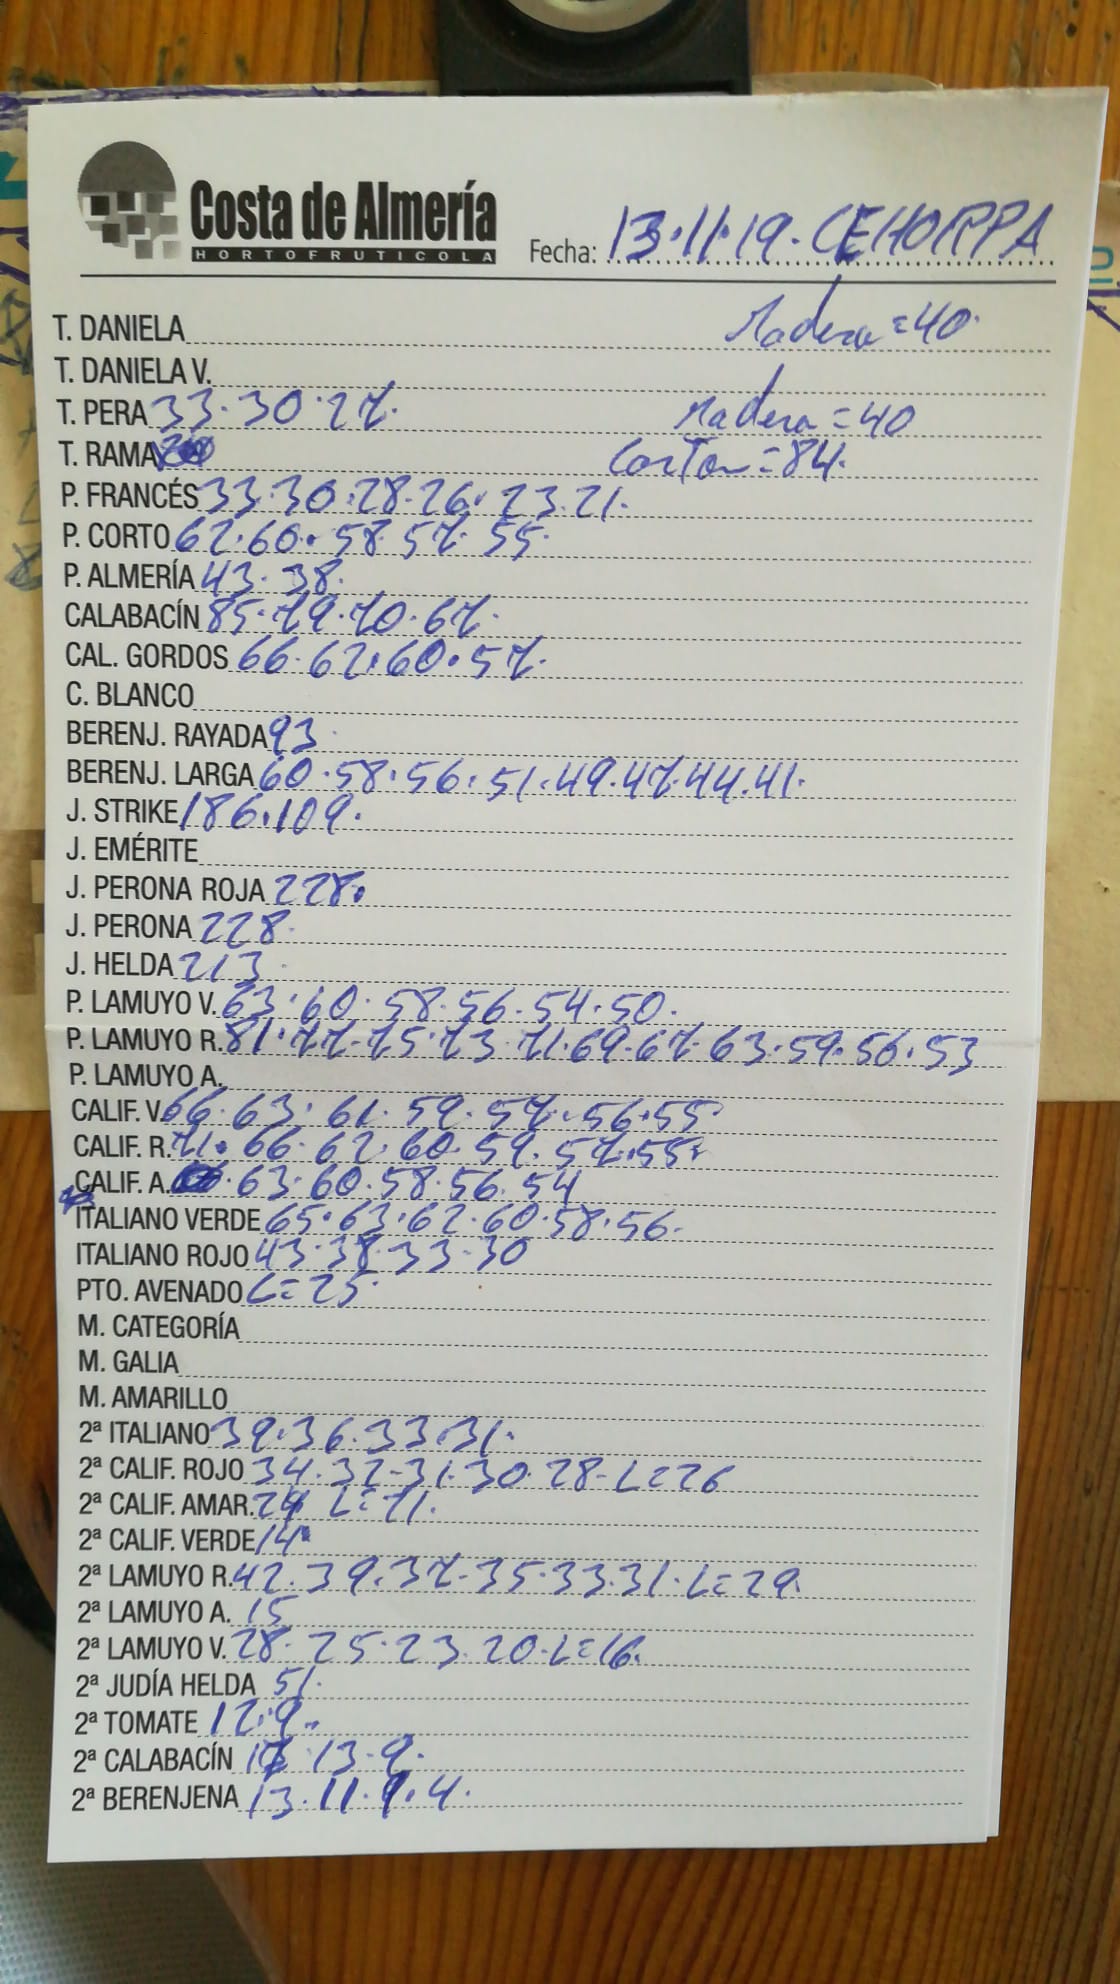 Costa de Almería
HORTOFRUTICOLA
Fecha: 13.11.19. CEHORPA
T. DANIELA Madera = 40.
T. DANIELA V.
T. PERA 33.30.27. Madera = 40
T. RAMA Carton = 84.
P. FRANCÉS 33.30.28.26.23.21.
P. CORTO 62.60.58.57.55.
P. ALMERÍA 43.38.
CALABACÍN 85.79.70.67.
CAL. GORDOS 66.62.60.57.
C. BLANCO
BERENJ. RAYADA 93.
BERENJ. LARGA 60.58.56.51.49.47.44.41.
J. STRIKE 186.109.
J. EMÉRITE
J. PERONA ROJA 228.
J. PERONA 228.
J. HELDA 213.
P. LAMUYO V. 63.60.58.56.54.50.
P. LAMUYO R. 81.77.75.73.71.69.67.63.59.56.53
P. LAMUYO A.
CALIF. V. 66.63.61.59.57.56.55
CALIF. R. 71.66.62.60.59.57.55.
CALIF. A. .63.60.58.56.54
ITALIANO VERDE 65.63.62.60.58.56.
ITALIANO ROJO 43.38.33.30
PTO. AVENADO L=25.
M. CATEGORÍA
M. GALIA
M. AMARILLO
2ª ITALIANO 39.36.33.31.
2ª CALIF. ROJO 34.32-31.30.28-L=26
2ª CALIF. AMAR. L=21.
2ª CALIF. VERDE 14.
2ª LAMUYO R. 42.39.37.35.33.31.L=29.
2ª LAMUYO A. 15
2ª LAMUYO V. 28.25.23.20.L=16.
2ª JUDÍA HELDA 51.
2ª TOMATE 12.9.
2ª CALABACÍN 13.9.
2ª BERENJENA 13.11.9.4.